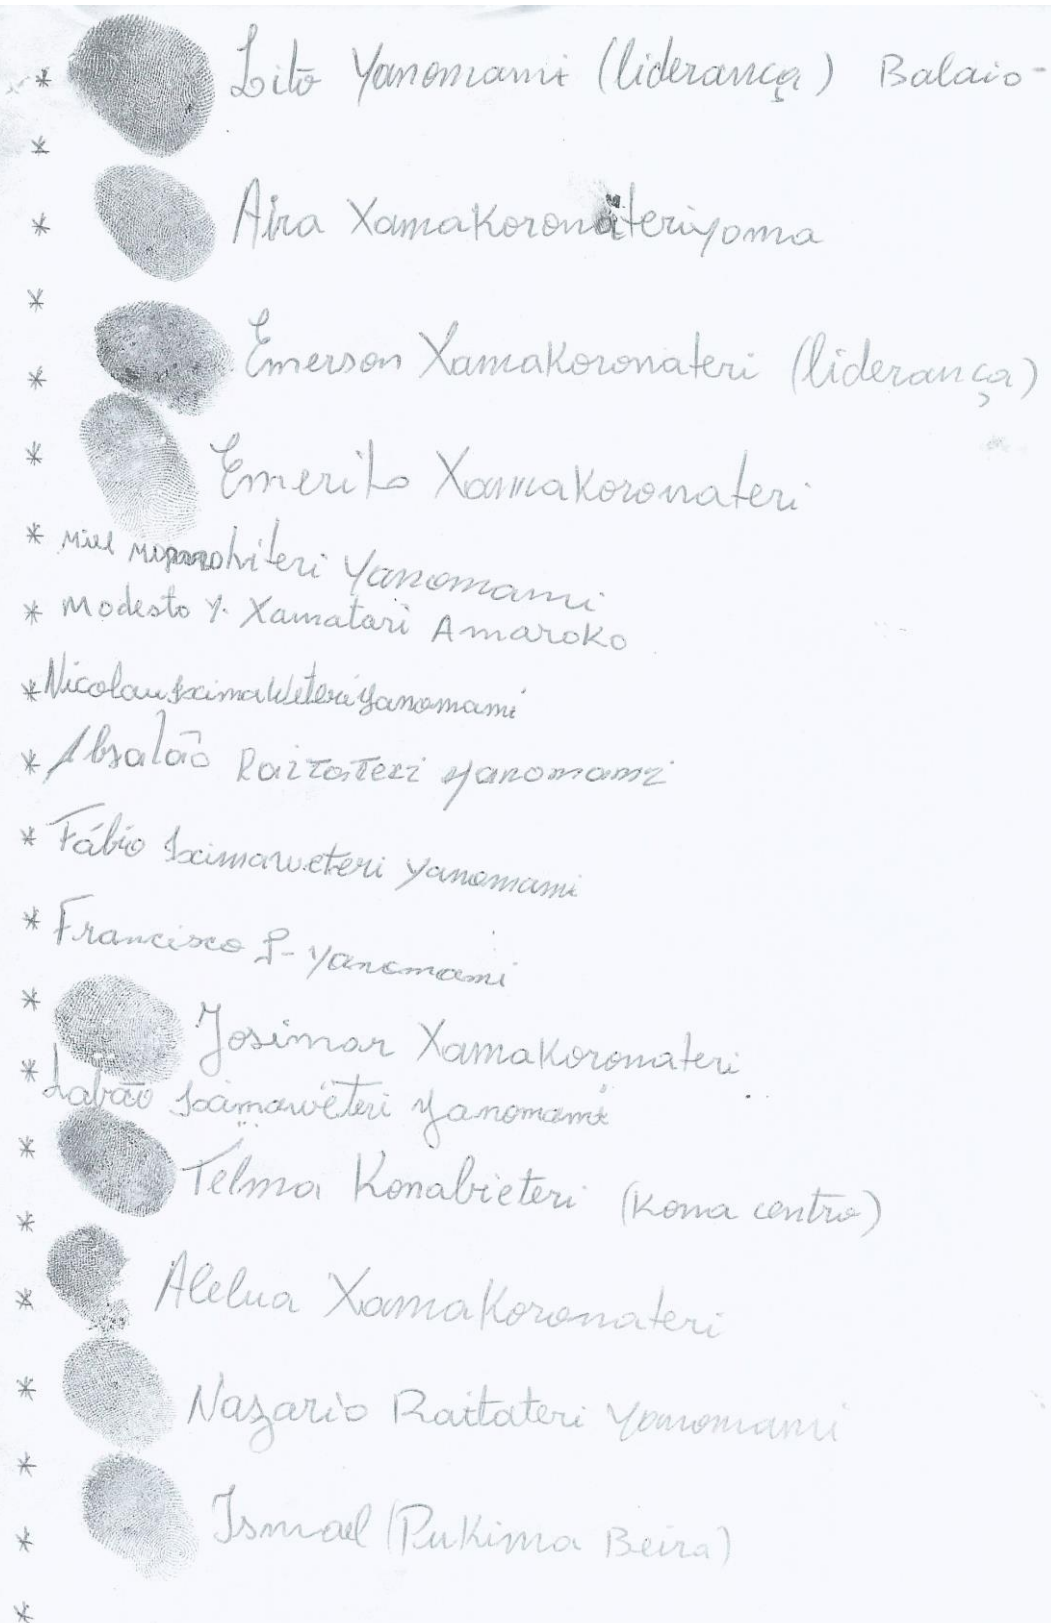 * Litō Yanomami (liderança) Balaio-
*
* Aira Xamakoronateriyoma
*
* Emerson Xamakoronateri (liderança)
* Emerito Xamakoronateri
* Yanomami
* Modesto Y. Xamatari Amaroko
* Nicolau Iximaweteri Yanomami
* Absalão Raitateri Yanomami
* Fábio Iximaweteri Yanomami
* Francisco Yanomami
* Josimar Xamakoronateri
* Labão Iximaweteri Yanomami
* Telma Konabieteri (Kona centro)
*
* Alelua Xamakoronateri
* Nazario Raitateri Yanomami
*
* Ismael (Pukima Beira)
*